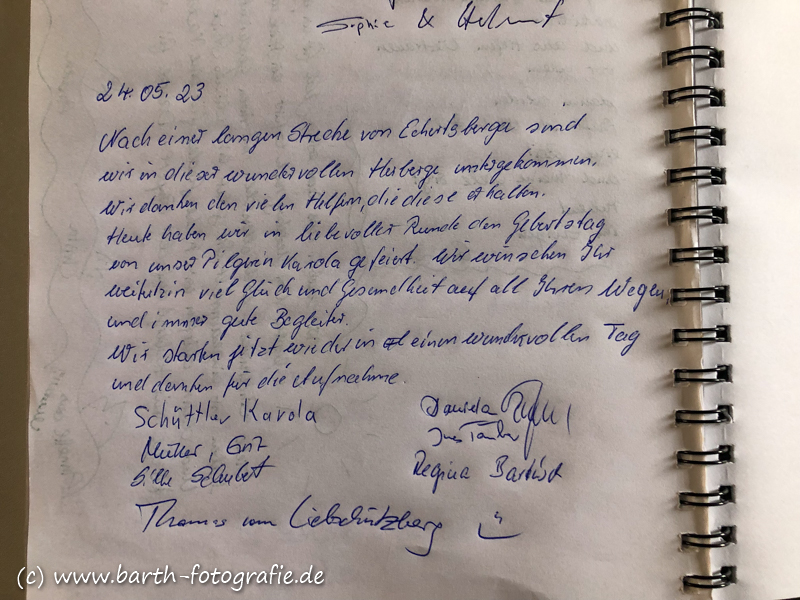 Sophie & Helmut
24.05.23
Nach einer langen Strecke von Eckartsberga sind
wir in dieser wundervollen Herberge untergekommen.
Wir danken den vielen Helfern, die diese erhalten.
Heute haben wir in liebevoller Runde den Geburtstag
von unser Pilgerin Karola gefeiert. Wir wünschen Ihr
weiterhin viel Glück und Gesundheit auf all Ihren Wegen,
und immer gute Begleiter.
Wir starten jetzt wieder in einen wundervollen Tag
und danken für die Aufnahme.
Schüttler Karola
Daniela
Müller,
Silke Schubert
Regina
Thomas vom Liebschützberg
(c) www.barth-fotografie.de